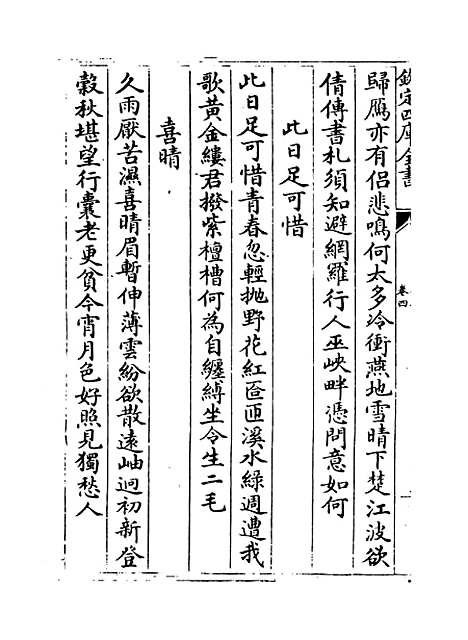 欽定四庫全書
卷四
歸鴈亦有侣悲鳴何太多冷衝燕地雪晴下楚江波欲
倩傳書札須知避網羅行人巫峽畔憑問意如何
此日足可惜
此日足可惜青春忽輕抛野花紅匼匝溪水綠週遭我
歌黄金縷君撥紫檀槽何為自纏縛坐令生二毛
喜晴
久雨厭苦濕喜晴眉暫伸薄雲紛欲散遠岫迥初新登
榖秋堪望行囊老更貧今宵月色好照見獨愁人